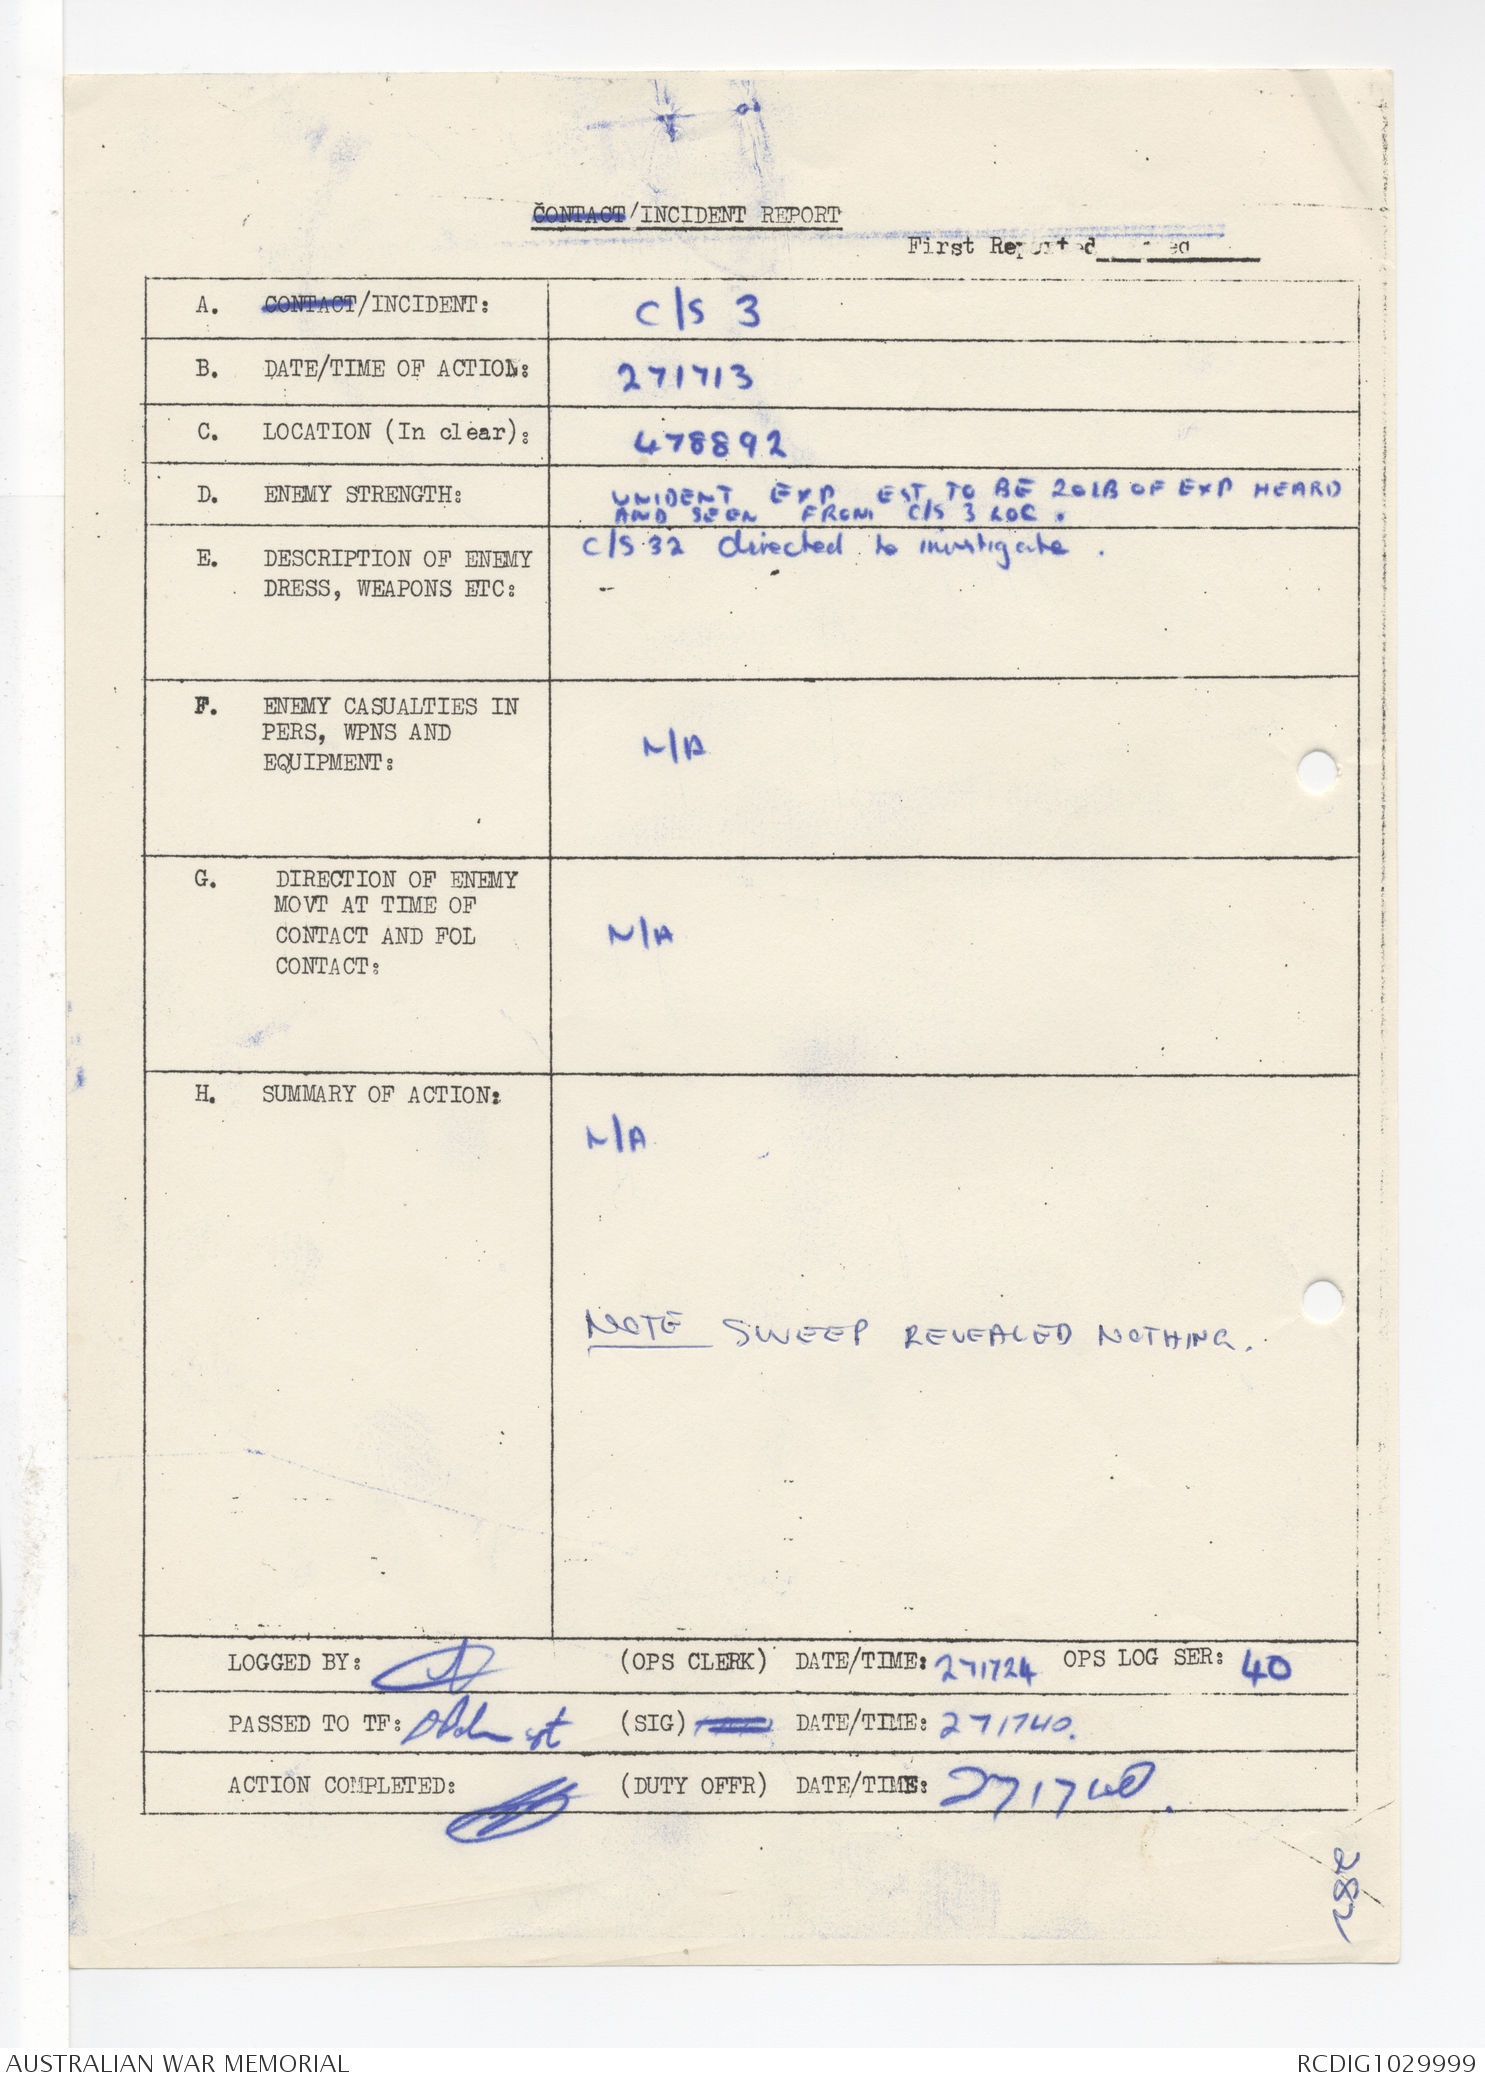 CONTACT/INCIDENT REPORT
First Reported
A. CONTACT/INCIDENT: C/S 3
B. DATE/TIME OF ACTION: 271713
C. LOCATION (In clear): 478892
D. ENEMY STRENGTH: UNIDENT EXP EST TO BE 20LB OF EXP HEARD
AND SEEN FROM C/S 3 LOC.
E. DESCRIPTION OF ENEMY C/S 32 directed to investigate.
DRESS, WEAPONS ETC: -
F. ENEMY CASUALTIES IN
PERS, WPNS AND N/A
EQUIPMENT:
G. DIRECTION OF ENEMY
MOVT AT TIME OF
CONTACT AND FOL N/A
CONTACT:
H. SUMMARY OF ACTION:
N/A
NOTE SWEEP REVEALED NOTHING.
LOGGED BY: (OPS CLERK) DATE/TIME: 271724 OPS LOG SER: 40
PASSED TO TF: (SIG) DATE/TIME: 271740.
ACTION COMPLETED: (DUTY OFFR) DATE/TIME: 271740.
282
AUSTRALIAN WAR MEMORIAL RCDIG1029999